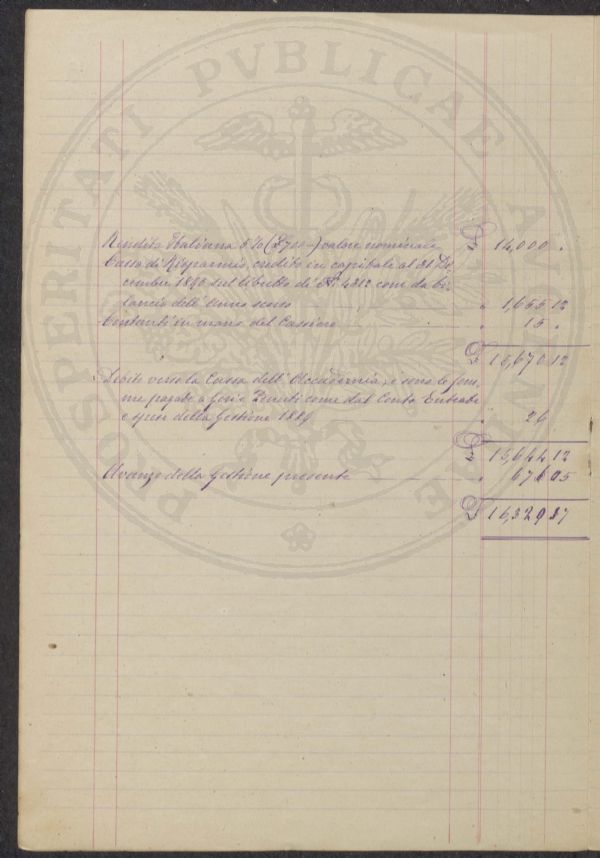 PROSPERITATI PVBLICAE
Rendita Italiana 5% (£700-) valore nominale £ 14,000 "
Cassa di Risparmio, credito in capitale al 31 Di-
cembre 1890 sul libretto di N. 4312 com da bi-
lancio dell' Anno scorso " 1,655 12
Contanti in mano del Cassiere " 15 "
£ 15,670 12
Debito verso la Cassa dell' Accademia, e sono le som-
me pagate a Gori e come dal Conto Entrate
e spese della Gestione 1889 " 26
£ 15,644 12
Avanzo della Gestione presente "
£